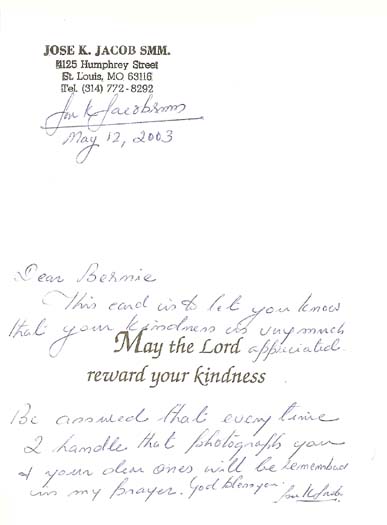 JOSE K. JACOB SMM.
4125 Humphrey Street
St. Louis, MO 63116
Tel. (314) 772-8292
Jose K Jacobsmm
May 12, 2003
Dear Bernie
This card is to let you know
that your kindness is very much
appreciated.
May the Lord
reward your kindness
Be assured that every time
I handle that photograph you
& your dear ones will be remembered
in my prayer. God bless you.